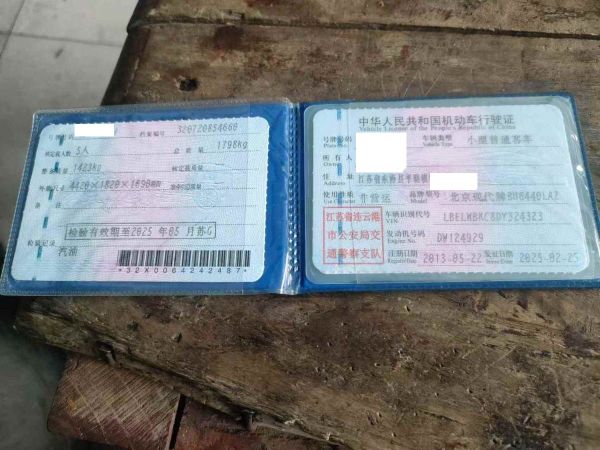 号牌号码
档案编号 320720854666
核定载人数 5人
总质量 1798kg
整备质量 1423kg
核定载质量
外廓尺寸 4420×1820×1690mm
准牵引总质量
备注
检验有效期至2025年05月苏G
检验记录
汽油
*32X0064242487*
中华人民共和国机动车行驶证
Vehicle License of the People's Republic of China
号牌号码
车辆类型 小型普通客车
Vehicle Type
所有人
Owner
住址 江苏省东海县
Address
使用性质 非营运
Use Character
品牌型号 北京现代牌
Model
江苏省连云港
市公安局交
通警察支队
车辆识别代号
VIN
发动机号码 DW124929
Engine No.
注册日期 2013-05-22
Register Date
发证日期 2025-02-25
Issue Date